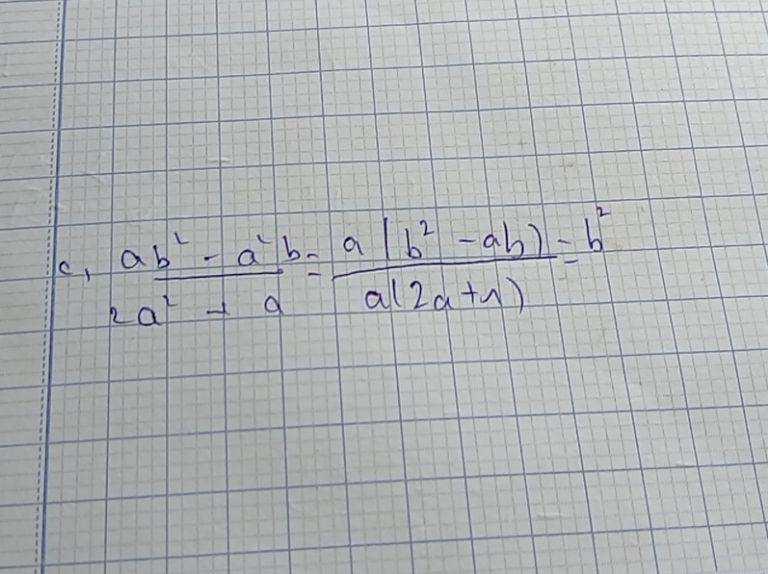 c, ab² - a²b / 2a² + a = a(b² - ab) / a(2a+1) = b²